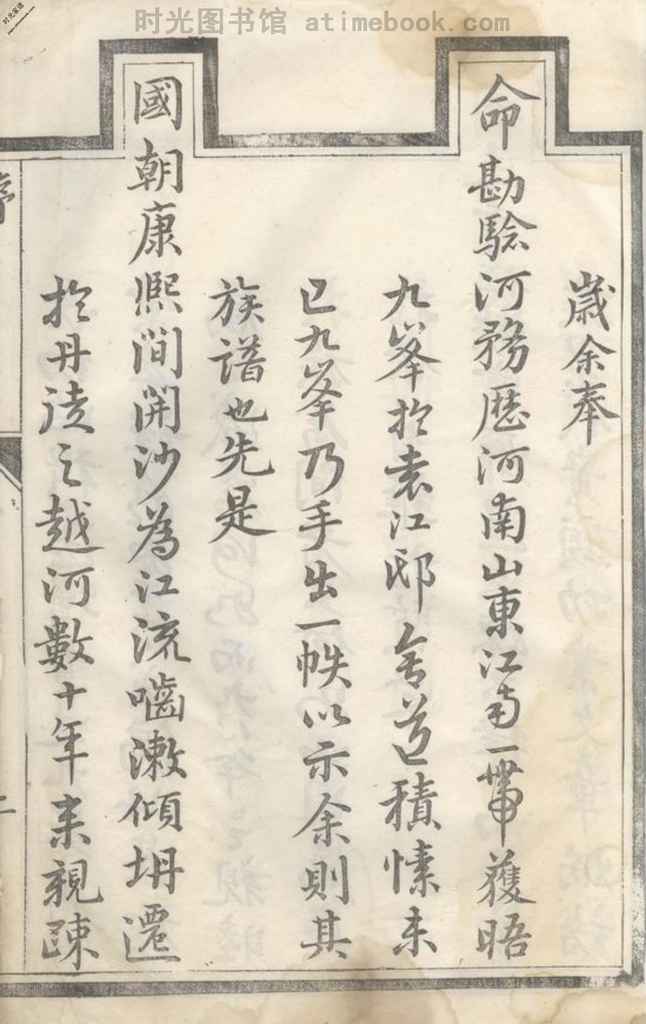 时光图书馆 atimebook.com
时光家谱
歲余奉
命勘騐河務歷河南山東江南一帶獲晤
九峯於袁江邸舍道積愫未
已九峯乃手出一帙以示余則其
族譜也先是
國朝康熙間開沙為江流嚙潄傾坍遷
於丹徒之越河數十年来親疎
序